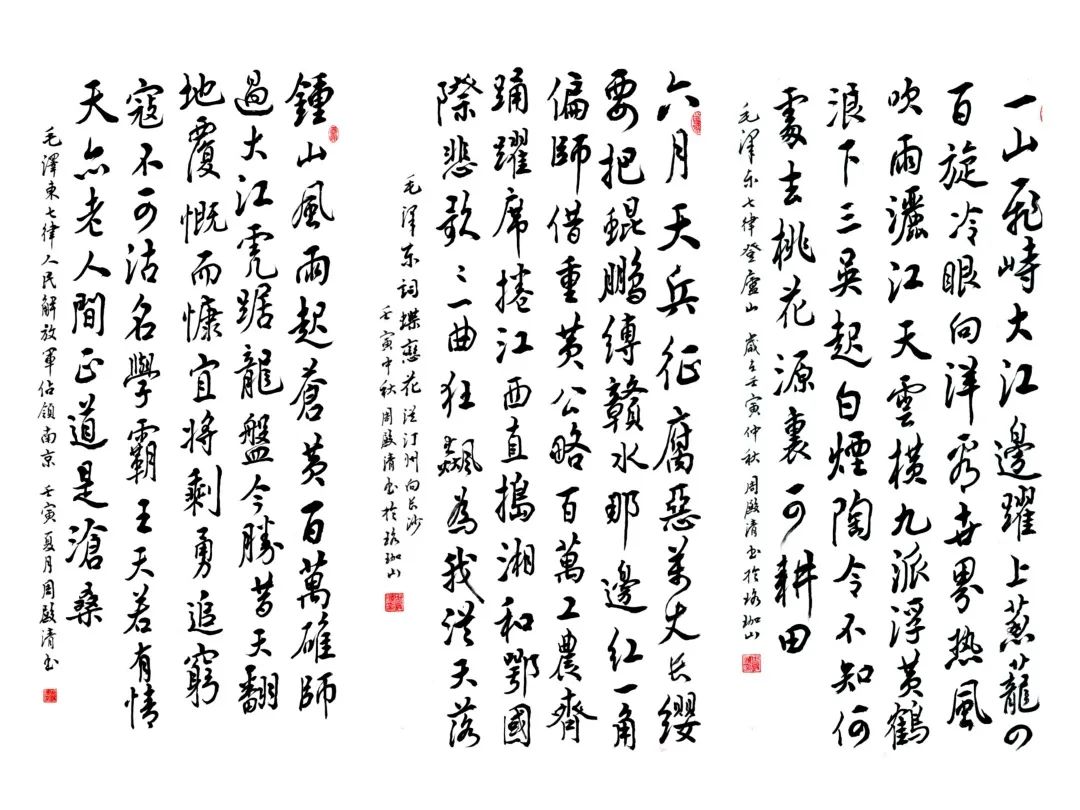 一山飛峙大江邊躍上葱蘢四
百旋冷眼向洋看世界热風
吹雨灑江天雲橫九派浮黄鶴
浪下三吳起白煙陶令不知何
處去桃花源裏可耕田
毛澤东七律登廬山 歲在壬寅仲秋周殿清书於珞珈山
六月天兵征腐惡萬丈长纓
要把鯤鵬縛贛水那邊红一角
偏師借重黄公略百萬工農齊
踊躍席捲江西直搗湘和鄂國
際悲歌〻一曲狂飆為我從天落
毛澤东词蝶戀花從汀州向长沙
壬寅中秋周殿清书於珞珈山
鍾山風雨起蒼黄百萬雄師
過大江虎踞龍盤今勝昔天翻
地覆慨而慷宜将剩勇追窮
寇不可沽名學霸王天若有情
天亦老人間正道是滄桑
毛澤東七律人民解放軍佔領南京 壬寅夏月周殿清书